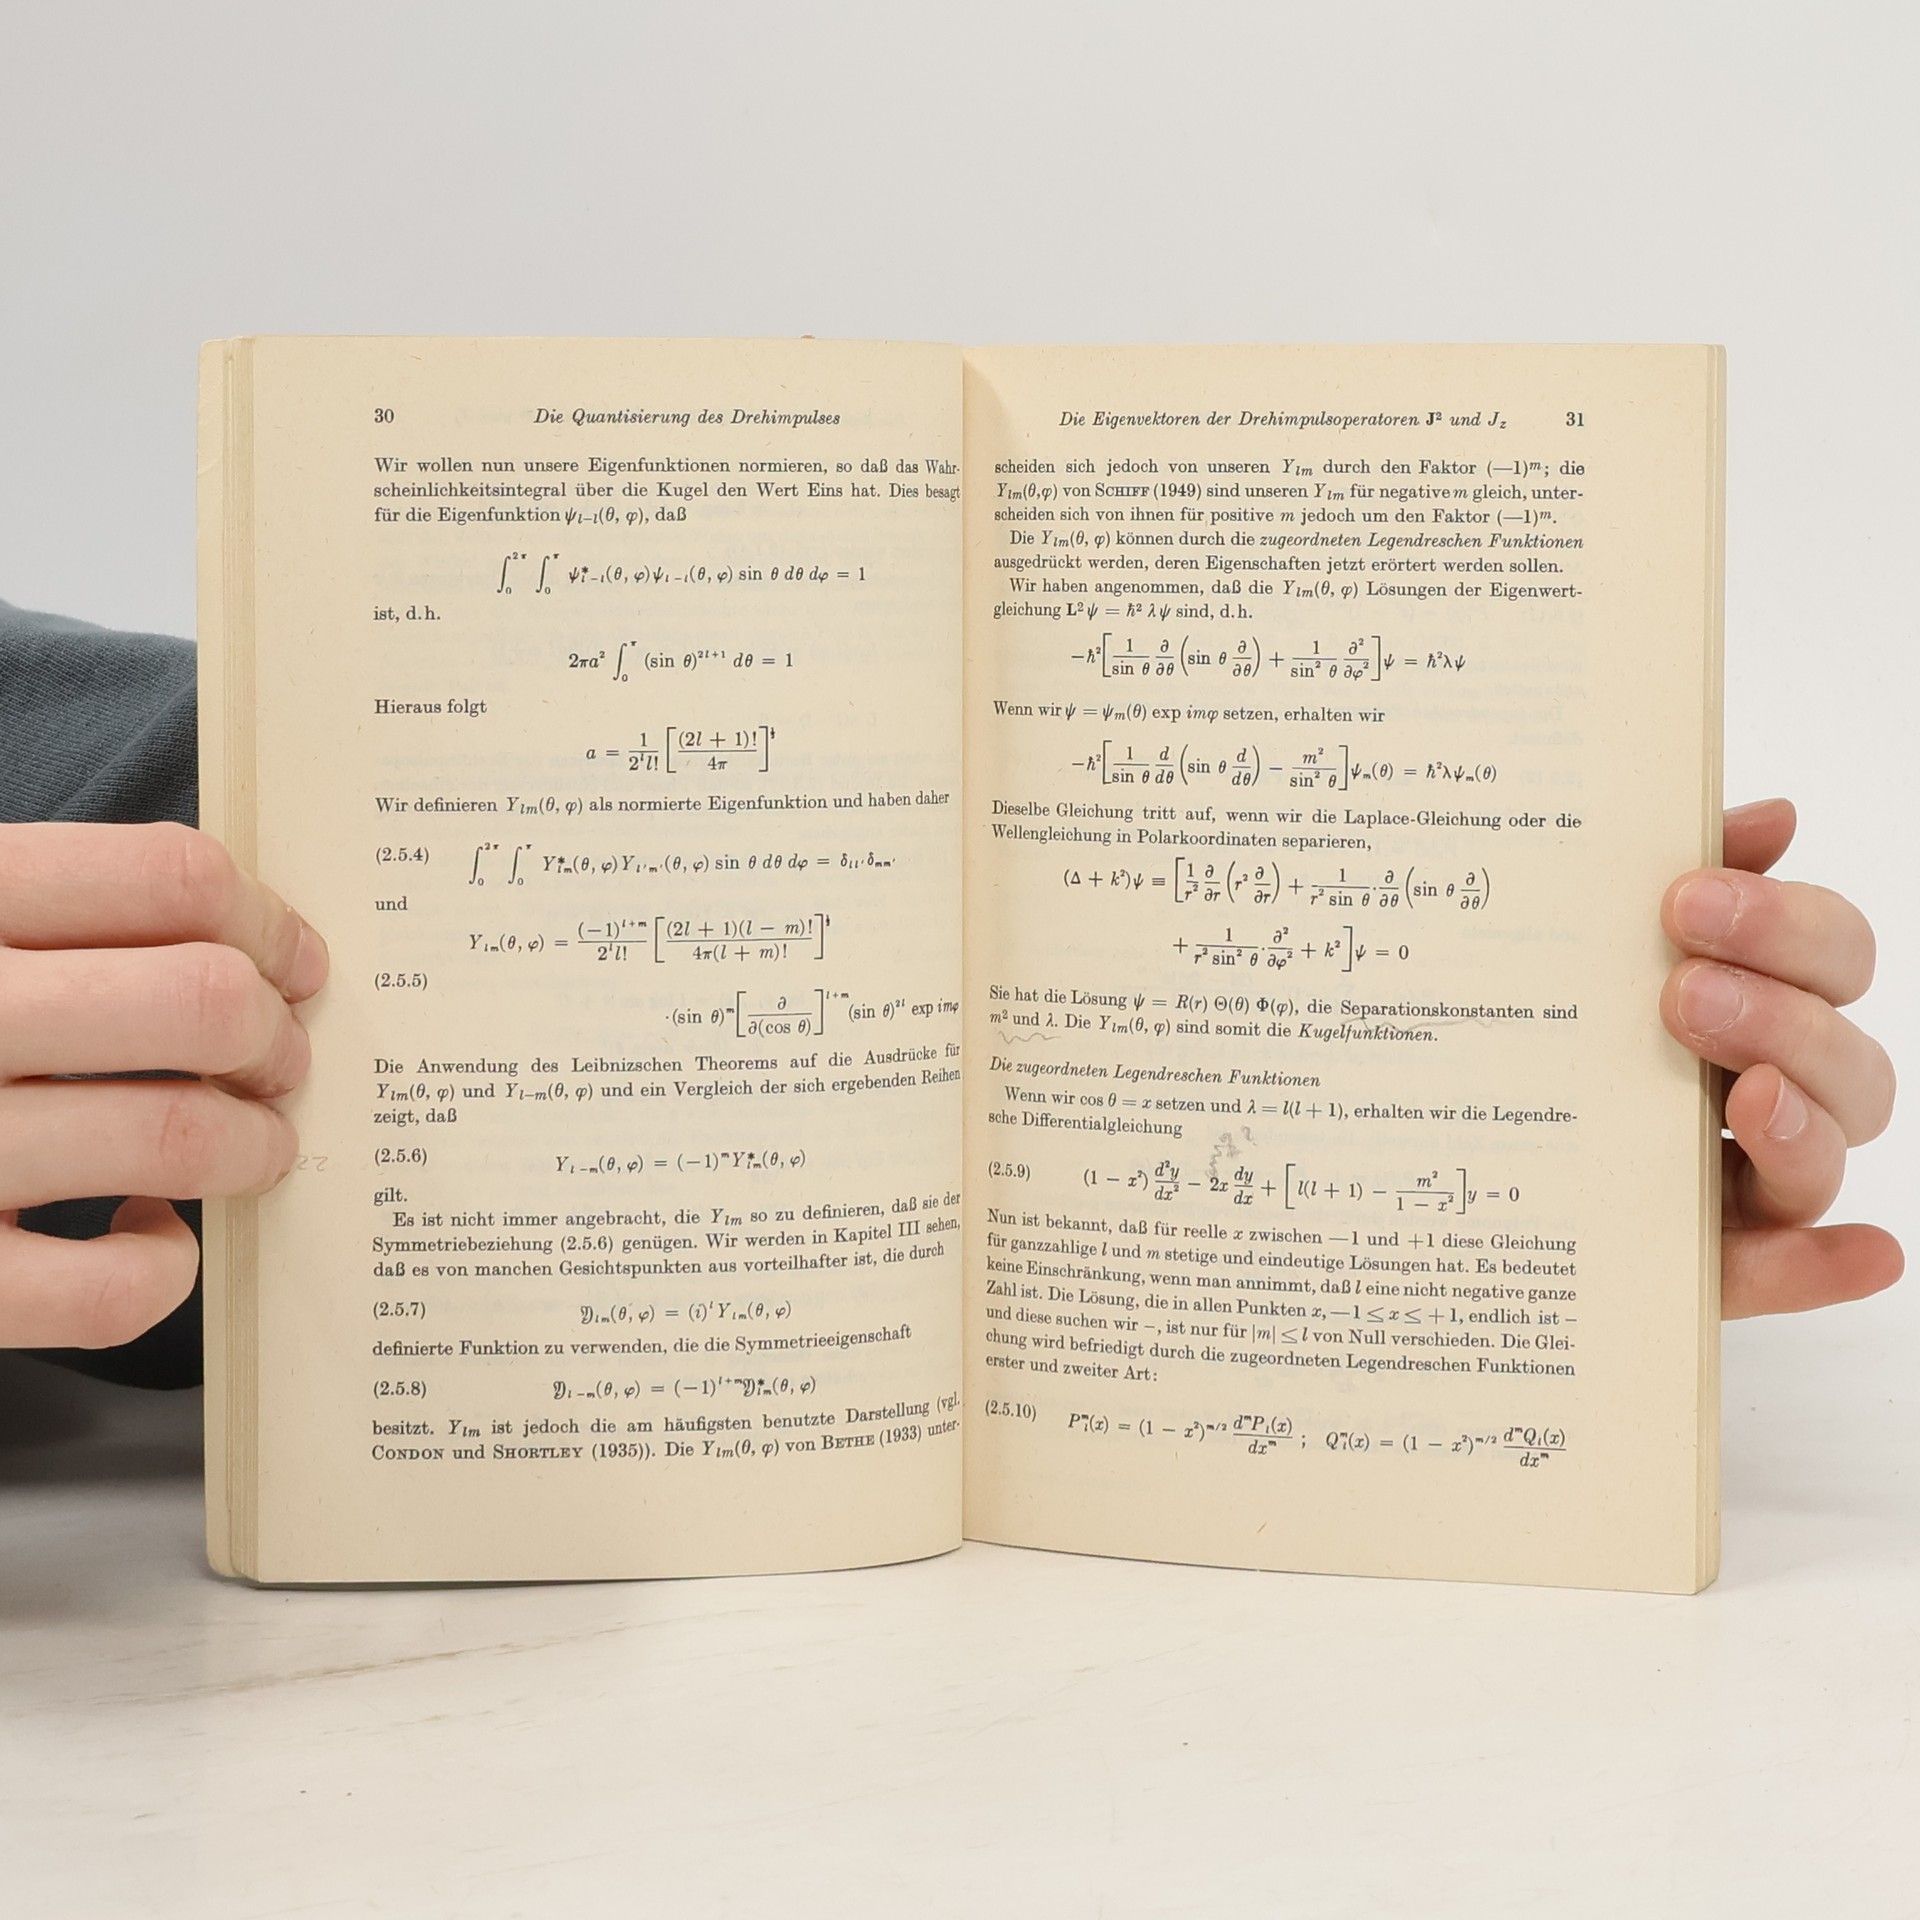 30 Die Quantisierung des Drehimpulses
Wir wollen nun unsere Eigenfunktionen normieren, so daß das Wahr-
scheinlichkeitsintegral über die Kugel den Wert Eins hat. Dies besagt
für die Eigenfunktion ψ_{l−l}(θ, φ), daß
∫_0^{2π} ∫_0^π ψ*_{l−l}(θ, φ)ψ_{l−l}(θ, φ) sin θ dθ dφ = 1
ist, d.h.
2πa² ∫_0^π (sin θ)^{2l+1} dθ = 1
Hieraus folgt
a = 1/(2^l l!) [(2l + 1)!/4π]^{½}
Wir definieren Y_{lm}(θ, φ) als normierte Eigenfunktion und haben daher
(2.5.4) ∫_0^{2π} ∫_0^π Y*_{lm}(θ, φ)Y_{l'm'}(θ, φ) sin θ dθ dφ = δ_{ll'}δ_{mm'}
und
Y_{lm}(θ, φ) = (−1)^{l+m}/(2^l l!) [(2l + 1)(l − m)!/4π(l + m)!]^{½}
(2.5.5)
·(sin θ)^m [∂/∂(cos θ)]^{l+m} (sin θ)^{2l} exp imφ
Die Anwendung des Leibnizschen Theorems auf die Ausdrücke für
Y_{lm}(θ, φ) und Y_{l−m}(θ, φ) und ein Vergleich der sich ergebenden Reihen
zeigt, daß
(2.5.6) Y_{l−m}(θ, φ) = (−1)^m Y*_{lm}(θ, φ)
gilt.
Es ist nicht immer angebracht, die Y_{lm} so zu definieren, daß sie der
Symmetriebeziehung (2.5.6) genügen. Wir werden in Kapitel III sehen,
daß es von manchen Gesichtspunkten aus vorteilhafter ist, die durch
(2.5.7) 𝔜_{lm}(θ, φ) = (i)^l Y_{lm}(θ, φ)
definierte Funktion zu verwenden, die die Symmetrieeigenschaft
(2.5.8) 𝔜_{l−m}(θ, φ) = (−1)^{l+m}𝔜*_{lm}(θ, φ)
besitzt. Y_{lm} ist jedoch die am häufigsten benutzte Darstellung (vgl.
CONDON und SHORTLEY (1935)). Die Y_{lm}(θ, φ) von BETHE (1933) unter-
Die Eigenvektoren der Drehimpulsoperatoren J² und J_z 31
scheiden sich jedoch von unseren Y_{lm} durch den Faktor (—1)^m; die
Y_{lm}(θ,φ) von SCHIFF (1949) sind unseren Y_{lm} für negative m gleich, unter-
scheiden sich von ihnen für positive m jedoch um den Faktor (—1)^m.
Die Y_{lm}(θ, φ) können durch die zugeordneten Legendreschen Funktionen
ausgedrückt werden, deren Eigenschaften jetzt erörtert werden sollen.
Wir haben angenommen, daß die Y_{lm}(θ, φ) Lösungen der Eigenwert-
gleichung L²ψ = ħ² λψ sind, d.h.
−ħ²[1/sin θ ∂/∂θ (sin θ ∂/∂θ) + 1/sin² θ ∂²/∂φ²]ψ = ħ²λψ
Wenn wir ψ = ψ_m(θ) exp imφ setzen, erhalten wir
−ħ²[1/sin θ d/dθ (sin θ d/dθ) − m²/sin² θ]ψ_m(θ) = ħ²λψ_m(θ)
Dieselbe Gleichung tritt auf, wenn wir die Laplace-Gleichung oder die
Wellengleichung in Polarkoordinaten separieren,
(Δ + k²)ψ ≡ [1/r² ∂/∂r (r² ∂/∂r) + 1/(r² sin θ)·∂/∂θ (sin θ ∂/∂θ)
+ 1/(r² sin² θ)·∂²/∂φ² + k²]ψ = 0
Sie hat die Lösung ψ = R(r) Θ(θ) Φ(φ), die Separationskonstanten sind
m² und λ. Die Y_{lm}(θ, φ) sind somit die Kugelfunktionen.
Die zugeordneten Legendreschen Funktionen
Wenn wir cos θ = x setzen und λ = l(l + 1), erhalten wir die Legendre-
sche Differentialgleichung
(2.5.9) (1 − x²) d²y/dx² − 2x dy/dx + [l(l + 1) − m²/(1 − x²)]y = 0
Nun ist bekannt, daß für reelle x zwischen —1 und +1 diese Gleichung
für ganzzahlige l und m stetige und eindeutige Lösungen hat. Es bedeutet
keine Einschränkung, wenn man annimmt, daß l eine nicht negative ganze
Zahl ist. Die Lösung, die in allen Punkten x, —1 ≤ x ≤ +1, endlich ist –
und diese suchen wir –, ist nur für |m| ≤ l von Null verschieden. Die Glei-
chung wird befriedigt durch die zugeordneten Legendreschen Funktionen
erster und zweiter Art:
(2.5.10) P_l^m(x) = (1 − x²)^{m/2} d^m P_l(x)/dx^m ; Q_l^m(x) = (1 − x²)^{m/2} d^m Q_l(x)/dx^m